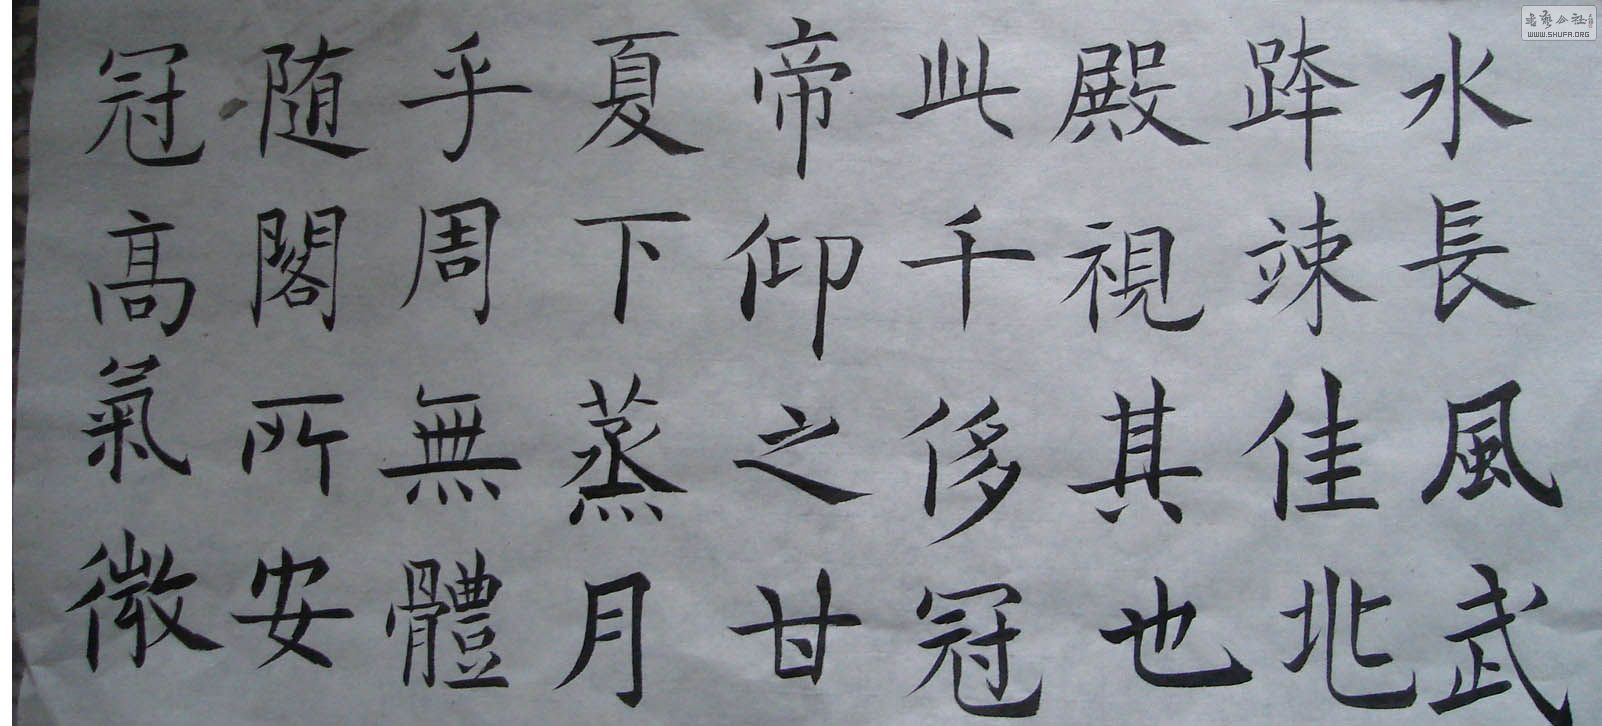 水長風武
跨竦佳北
殿視其也
此千侈冠
帝仰之甘
夏下蒸月
乎周無體
随閣所安
冠高氣微
書藝公社
WWW.SHUFA.ORG